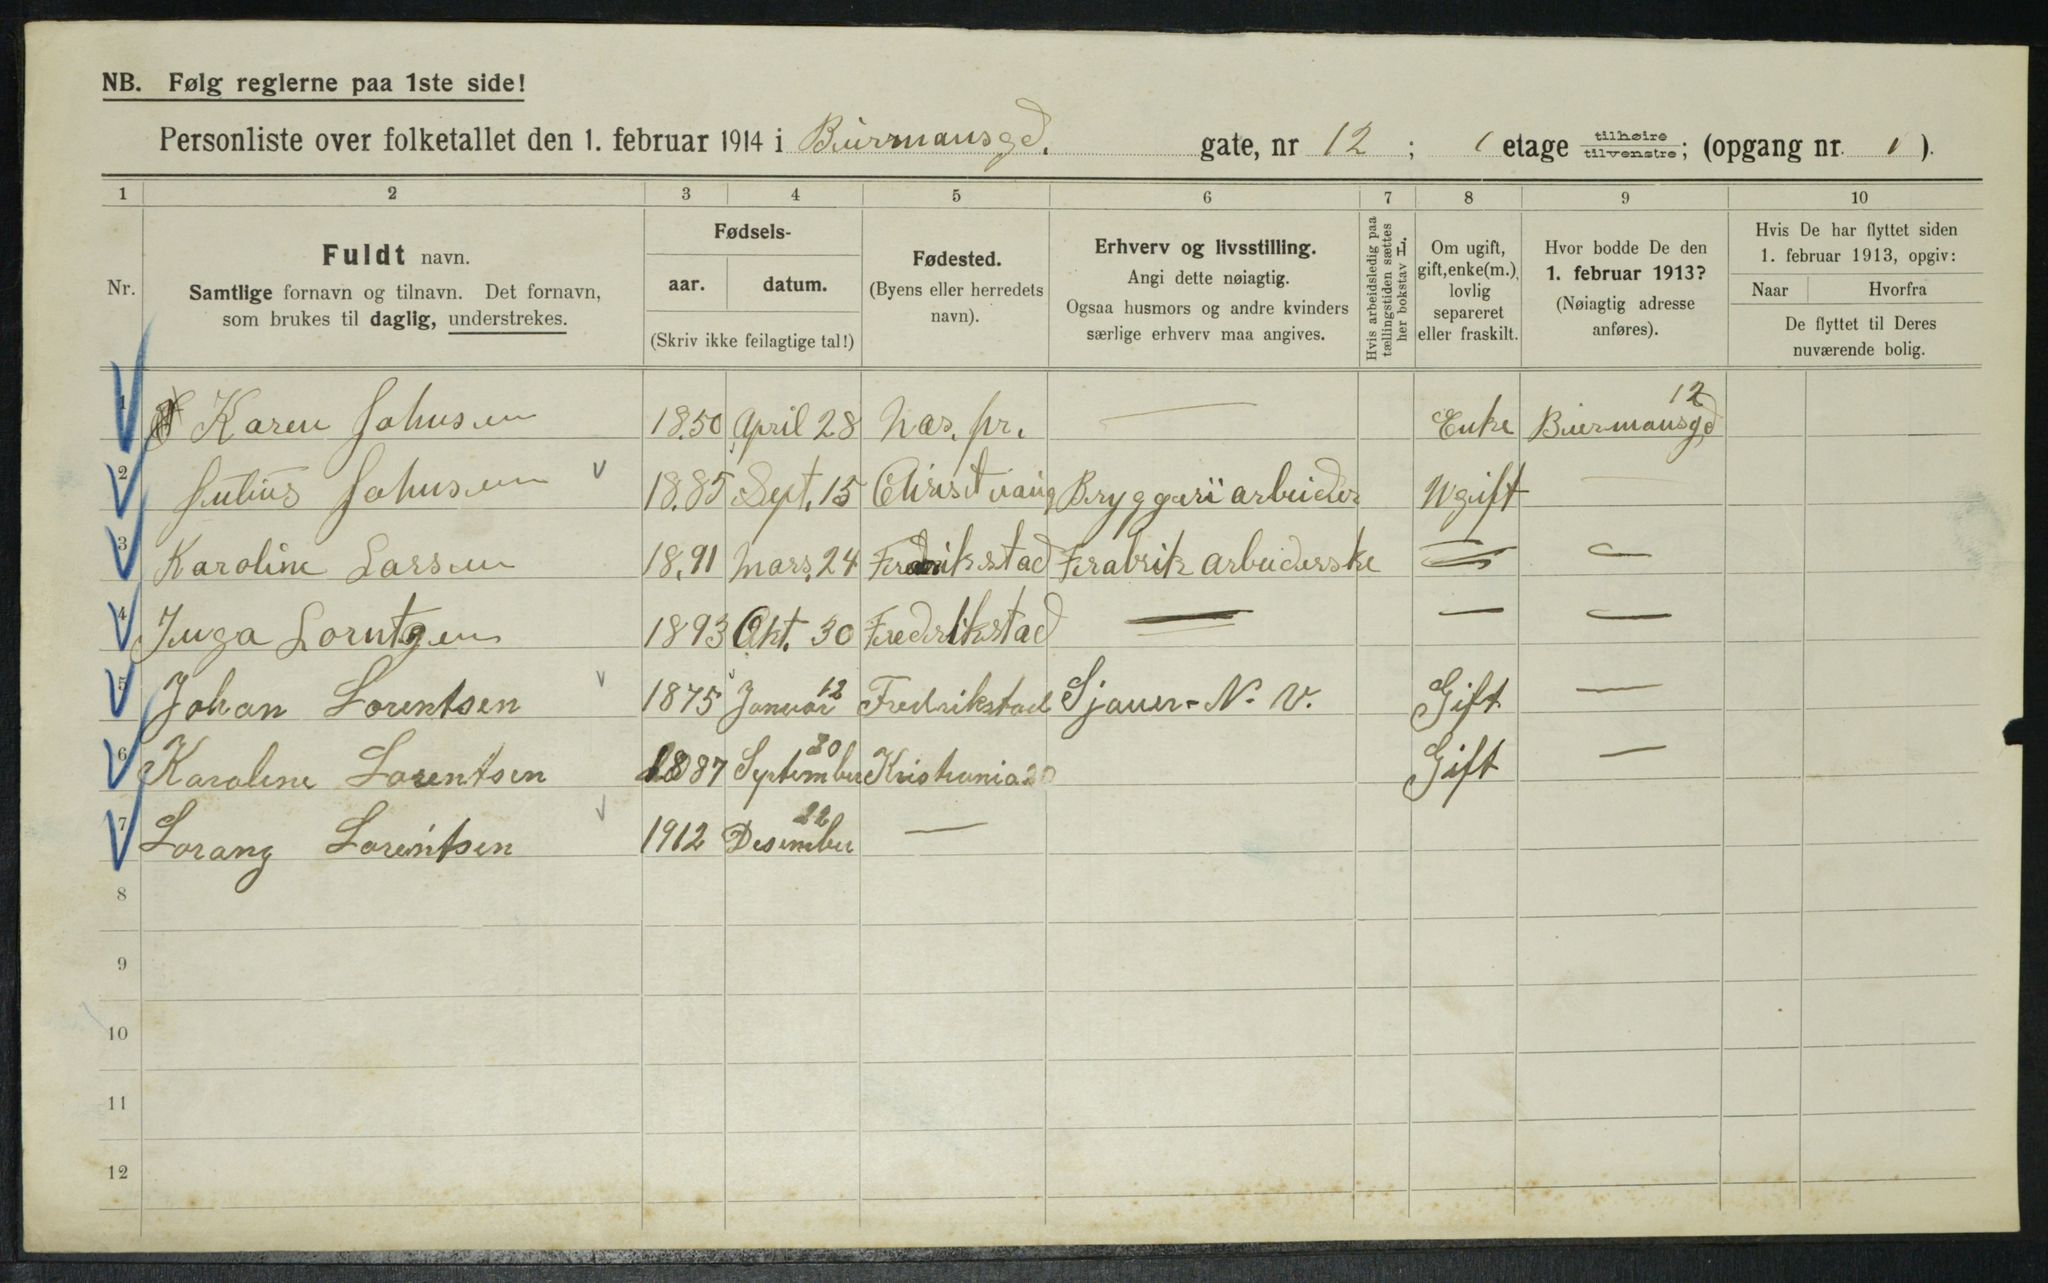 NB. Følg reglerne paa 1ste side!
Personliste over folketallet den 1. februar 1914 i Biermansgd. gate, nr 12 ; 1 etage tilhøire/tilvenstre; (opgang nr. 1 ).
1 2 3 4 5 6 7 8 9 10
Nr.
Fuldt navn.
Samtlige fornavn og tilnavn. Det fornavn,
som brukes til daglig, understrekes.
Fødsels-
aar. datum.
(Skriv ikke feilagtige tal!)
Fødested.
(Byens eller herredets
navn).
Erhverv og livsstilling.
Angi dette nøiagtig.
Ogsaa husmors og andre kvinders
særlige erhverv maa angives.
Hvis arbeidsledig paa
tællingstiden sættes
her bokstav L.
Om ugift,
gift, enke(m.),
lovlig
separeret
eller fraskilt.
Hvor bodde De den
1. februar 1913?
(Nøiagtig adresse
anføres).
Hvis De har flyttet siden
1. februar 1913, opgiv:
Naar Hvorfra
De flyttet til Deres
nuværende bolig.
1 Karen Johnsen 1850 April 28 Næs. pr. — Enke Biermansgd 12
2 Julius Johnsen 1885 Sept. 15 Christiania Bryggeri arbeider Ugift —
3 Karoline Larsen 18.91 Mars. 24 Fredrikstad Fabrik arbeiderske — —
4 Inga Lorntzen 1893 Okt. 30 Fredrikstad — — —
5 Johan Lorentsen 1875 Januar 12 Fredrikstad Sjauer - N. V. Gift —
6 Karoline Lorentsen 1887 September 20 Kristiania 20 Gift —
7 Lorang Lorentsen 1912 Desember 22 —
8
9
10
11
12